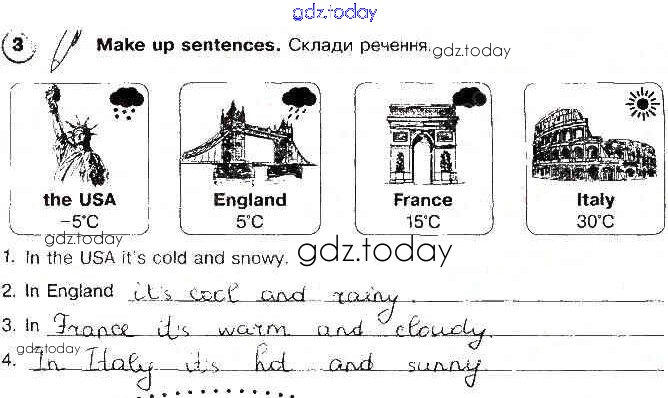 gdz.today
3 Make up sentences. Склади речення.
gdz.today
the USA
-5°C
England
5°C
France
15°C
Italy
30°C
gdz.today
1. In the USA it's cold and snowy.
gdz.today
2. In England it's cool and rainy.
3. In France it's warm and cloudy.
gdz.today
4. In Italy it's hot and sunny